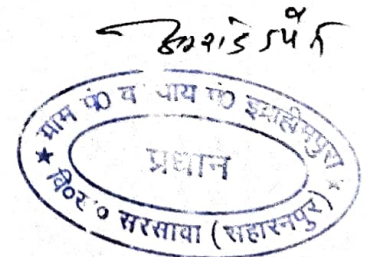 ग्राम पं० व न्याय पं० इब्राहीमपुरा
प्रधान
वि०ख० सरसावा (सहारनपुर)